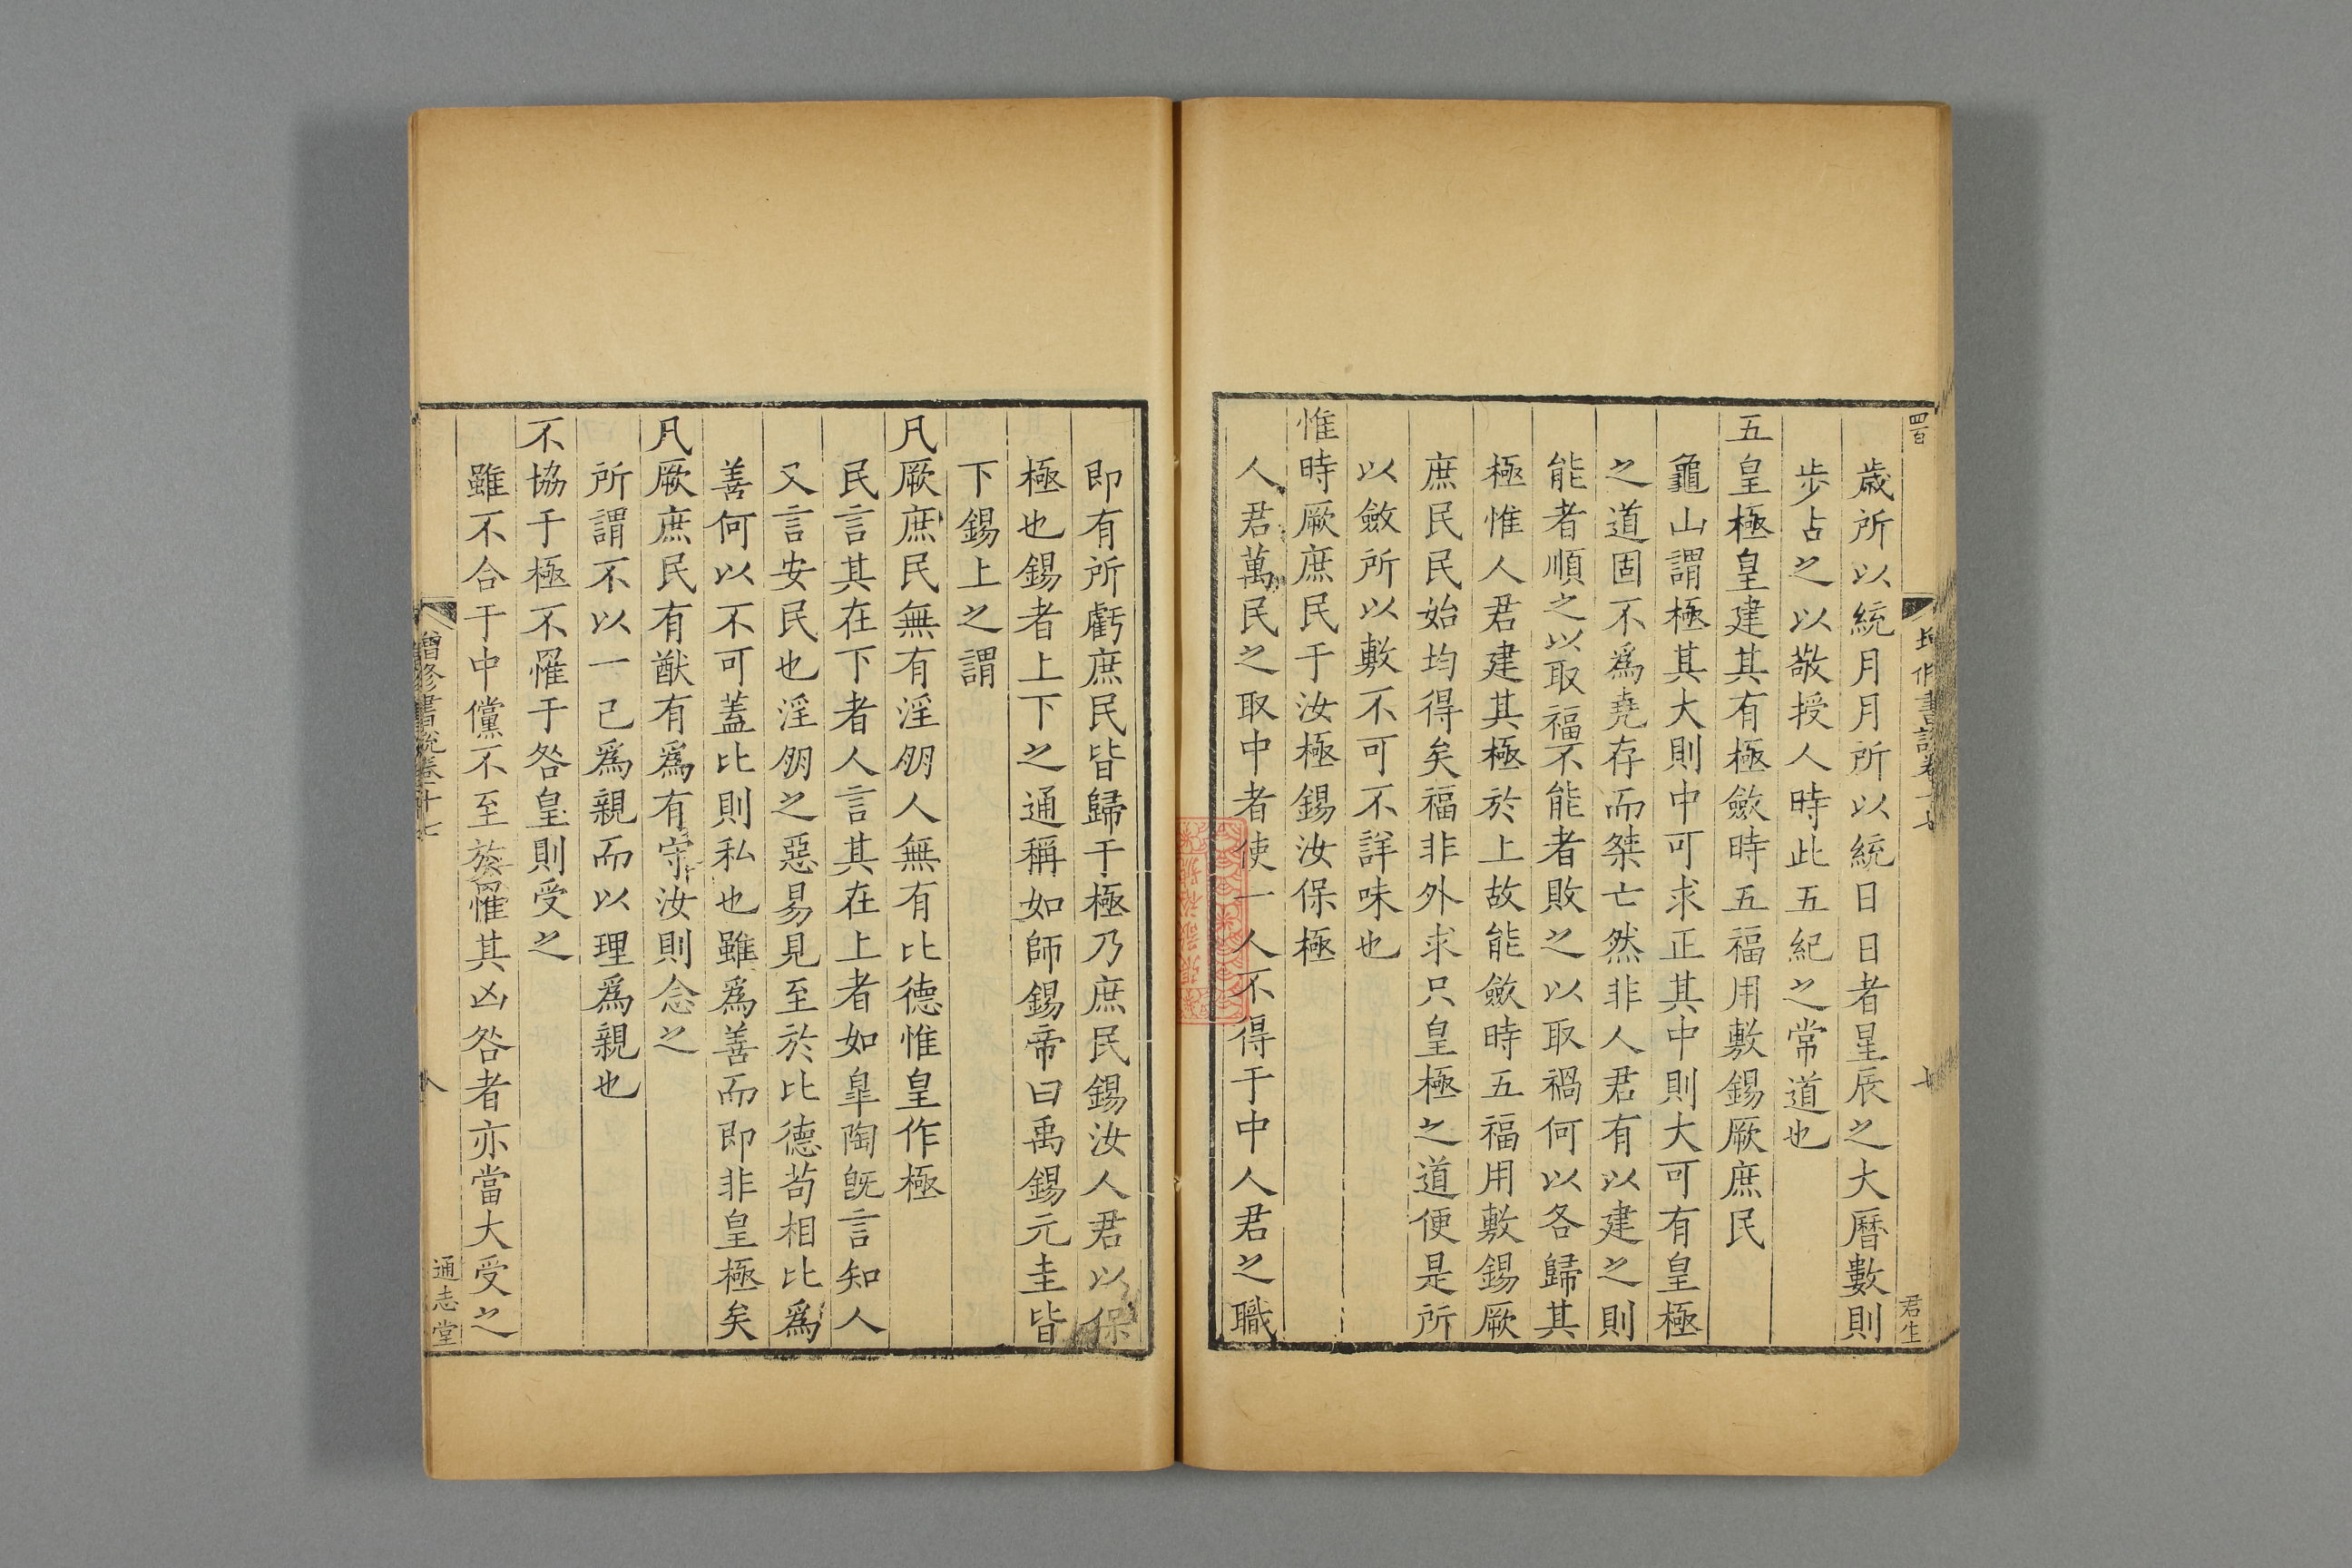 四百
歲所以統月月所以統日日者星辰之大曆數則
步占之以敬授人時此五紀之常道也
五皇極皇建其有極斂時五福用敷錫厥庶民
龜山謂極其大則中可求正其中則大可有皇極
之道固不爲堯存而桀亡然非人君有以建之則
能者順之以取福不能者敗之以取禍何以各歸其
極惟人君建其極於上故能斂時五福用敷錫厥
庶民民始均得矣福非外求只皇極之道便是所
以斂所以敷不可不詳味也
惟時厥庶民于汝極錫汝保極
人君萬民之取中者使一人不得于中人君之職
君生
即有所虧庶民皆歸于極乃庶民錫汝人君以保
極也錫者上下之通稱如師錫帝曰禹錫元圭皆
下錫上之謂
凡厥庶民無有淫朋人無有比德惟皇作極
民言其在下者人言其在上者如臯陶旣言知人
又言安民也淫朋之惡易見至於比德茍相比爲
善何以不可蓋比則私也雖爲善而即非皇極矣
凡厥庶民有猷有爲有守汝則念之
所謂不以一己爲親而以理爲親也
不協于極不罹于咎皇則受之
雖不合于中儻不至於罹其凶咎者亦當大受之
增修書說卷十七
八
通志堂